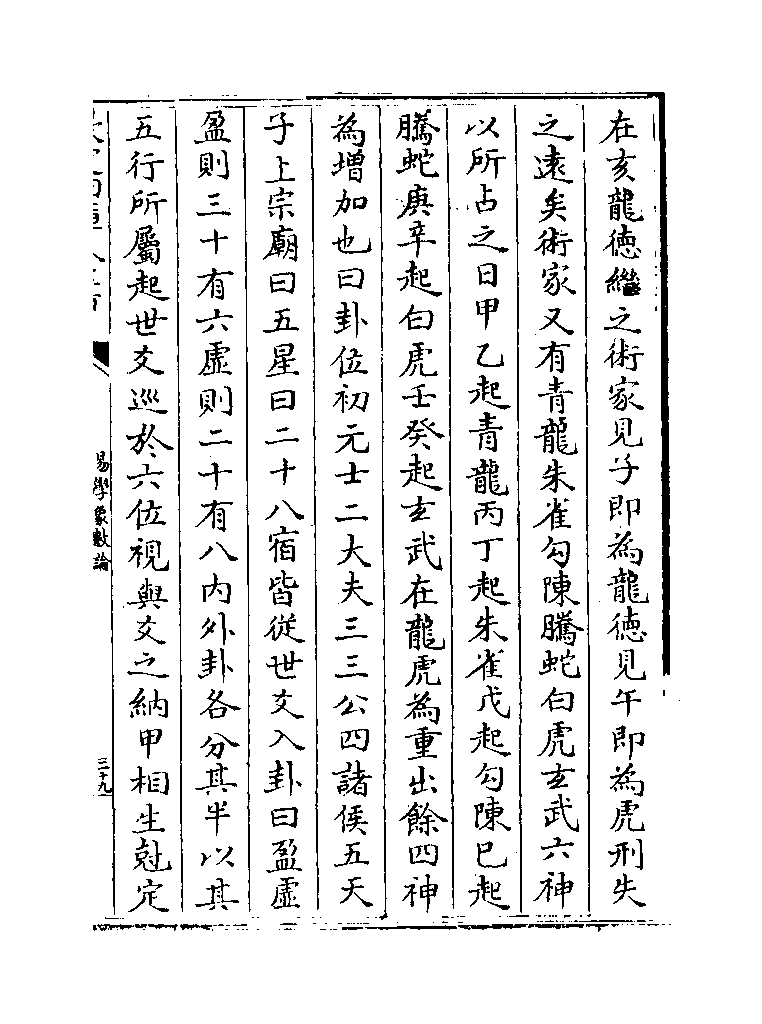 在亥龍徳繼之術家見子即為龍徳見午即為虎刑失
之遠矣術家又有青龍朱雀勾陳騰蛇白虎玄武六神
以所占之日甲乙起青龍丙丁起朱雀戊起勾陳巳起
騰蛇庚辛起白虎壬癸起玄武在龍虎為重出餘四神
為增加也曰卦位初元士二大夫三三公四諸侯五天
子上宗廟曰五星曰二十八宿皆從世爻入卦曰盈虛
盈則三十有六虛則二十有八内外卦各分其半以其
五行所屬起世爻巡於六位視與爻之納甲相生尅定
易學象數論
三十九